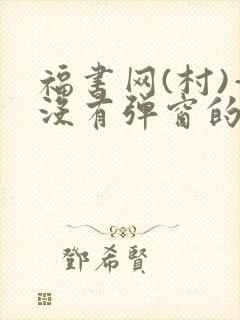 福书网(村)-
没有弹窗的
鄧希賢